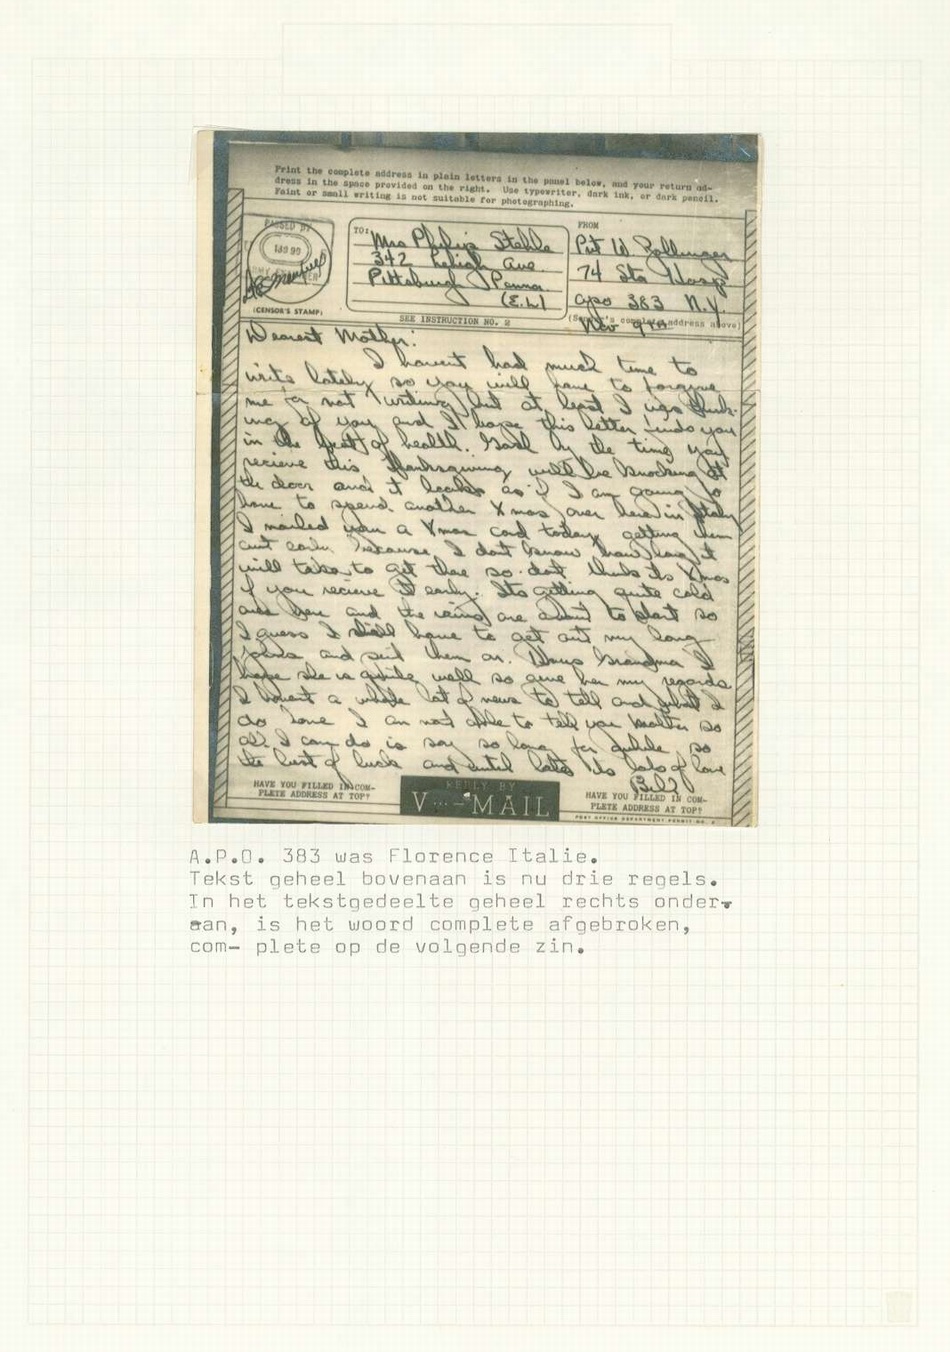 Print the complete address in plain letters in the panel below, and your return ad-
dress in the space provided on the right. Use typewriter, dark ink, or dark pencil.
Faint or small writing is not suitable for photographing.
PASSED BY
ARMY EXAMINER
(CENSOR'S STAMP)
TO:
Mrs Philip Stehle
342 Lehigh Ave.
Pittsburgh Penna.
(E.L.)
SEE INSTRUCTION NO. 2
FROM
Pvt W.
74 Sta Hosp
apo 383 N.Y.
(Sender's complete address above)
Nov 9th
Dearest Mother:
I havent had much time to
write lately so you will have to forgive
me for not writing but at least I was think-
ing of you and I hope this letter finds you
in the best of health. Gosh by the time you
recieve this Thanksgiving will be knocking at
the door and it looks as if I am going to
have to spend another Xmas over here in Italy
I mailed you a Xmas card today getting them
out early because I dont know how long it
will take to get there so dont think its Xmas
if you recieve it early. Its getting quite cold
over here and the rains are about to start so
I guess I shall have to get out my long
johns and put them on. Hows Grandma I
hope she is quite well so give her my regards
I havent a whole lot of news to tell and what I
do have I am not able to tell you Mother so
all I can do is say so long for awhile so
the best of luck and until later its lots of love
Bill
HAVE YOU FILLED IN COM-
PLETE ADDRESS AT TOP?
REPLY BY
V···—MAIL
HAVE YOU FILLED IN COM-
PLETE ADDRESS AT TOP?
POST OFFICE DEPARTMENT PERMIT NO.
A.P.O. 383 was Florence Italie.
Tekst geheel bovenaan is nu drie regels.
In het tekstgedeelte geheel rechts onder-
aan, is het woord complete afgebroken,
com- plete op de volgende zin.